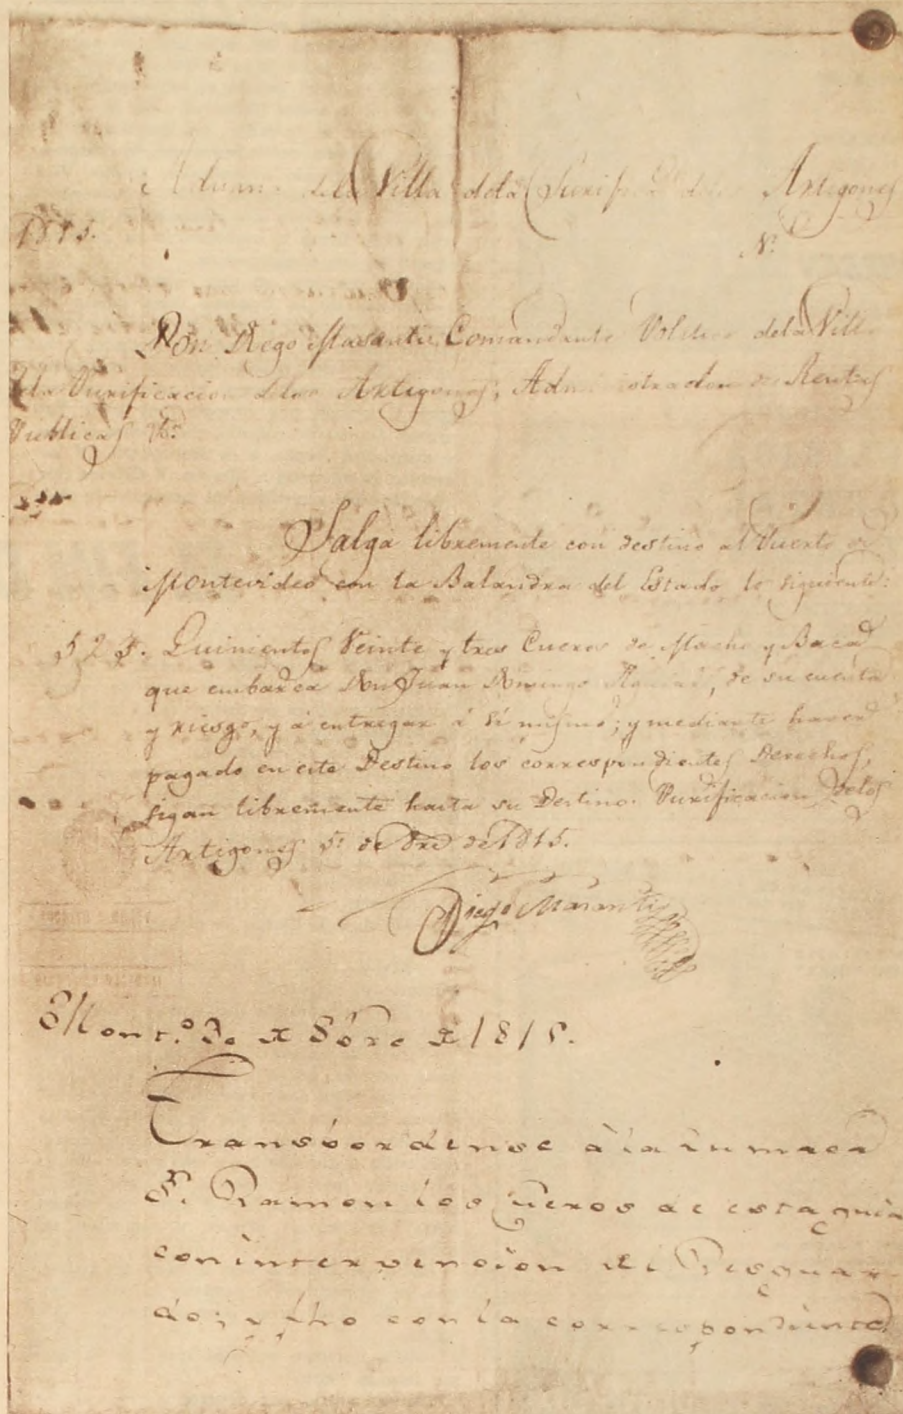 Aduana dela Villa dela Purific.on delos Artigones
1815.
N.o
Don Diego Masanti, Comandante Politico dela Villa
dela Purificacion delos Artigones, Administrador de Rentas
Publicas &.a
Salga libremente con destino al Puerto de
Montevideo con la Balandra del Estado lo siguiente:
523. Quinientos Veinte y tres Cueros de Macho y Baca
que embarca Don Juan Domingo de su cuenta
y riesgo, y á entregar á sí mismo; y mediante haver
pagado en este Destino los correspondientes Derechos,
sigan libremente hasta su Destino. Purificacion delos
Artigones 5. de de 1815.
Diego Masanti
Mont.o de 1815.
Transbordense à la sumaca
S. Ramon los Cueros de esta guia
con intervencion del Resguar
do; y fho con la correspondiente